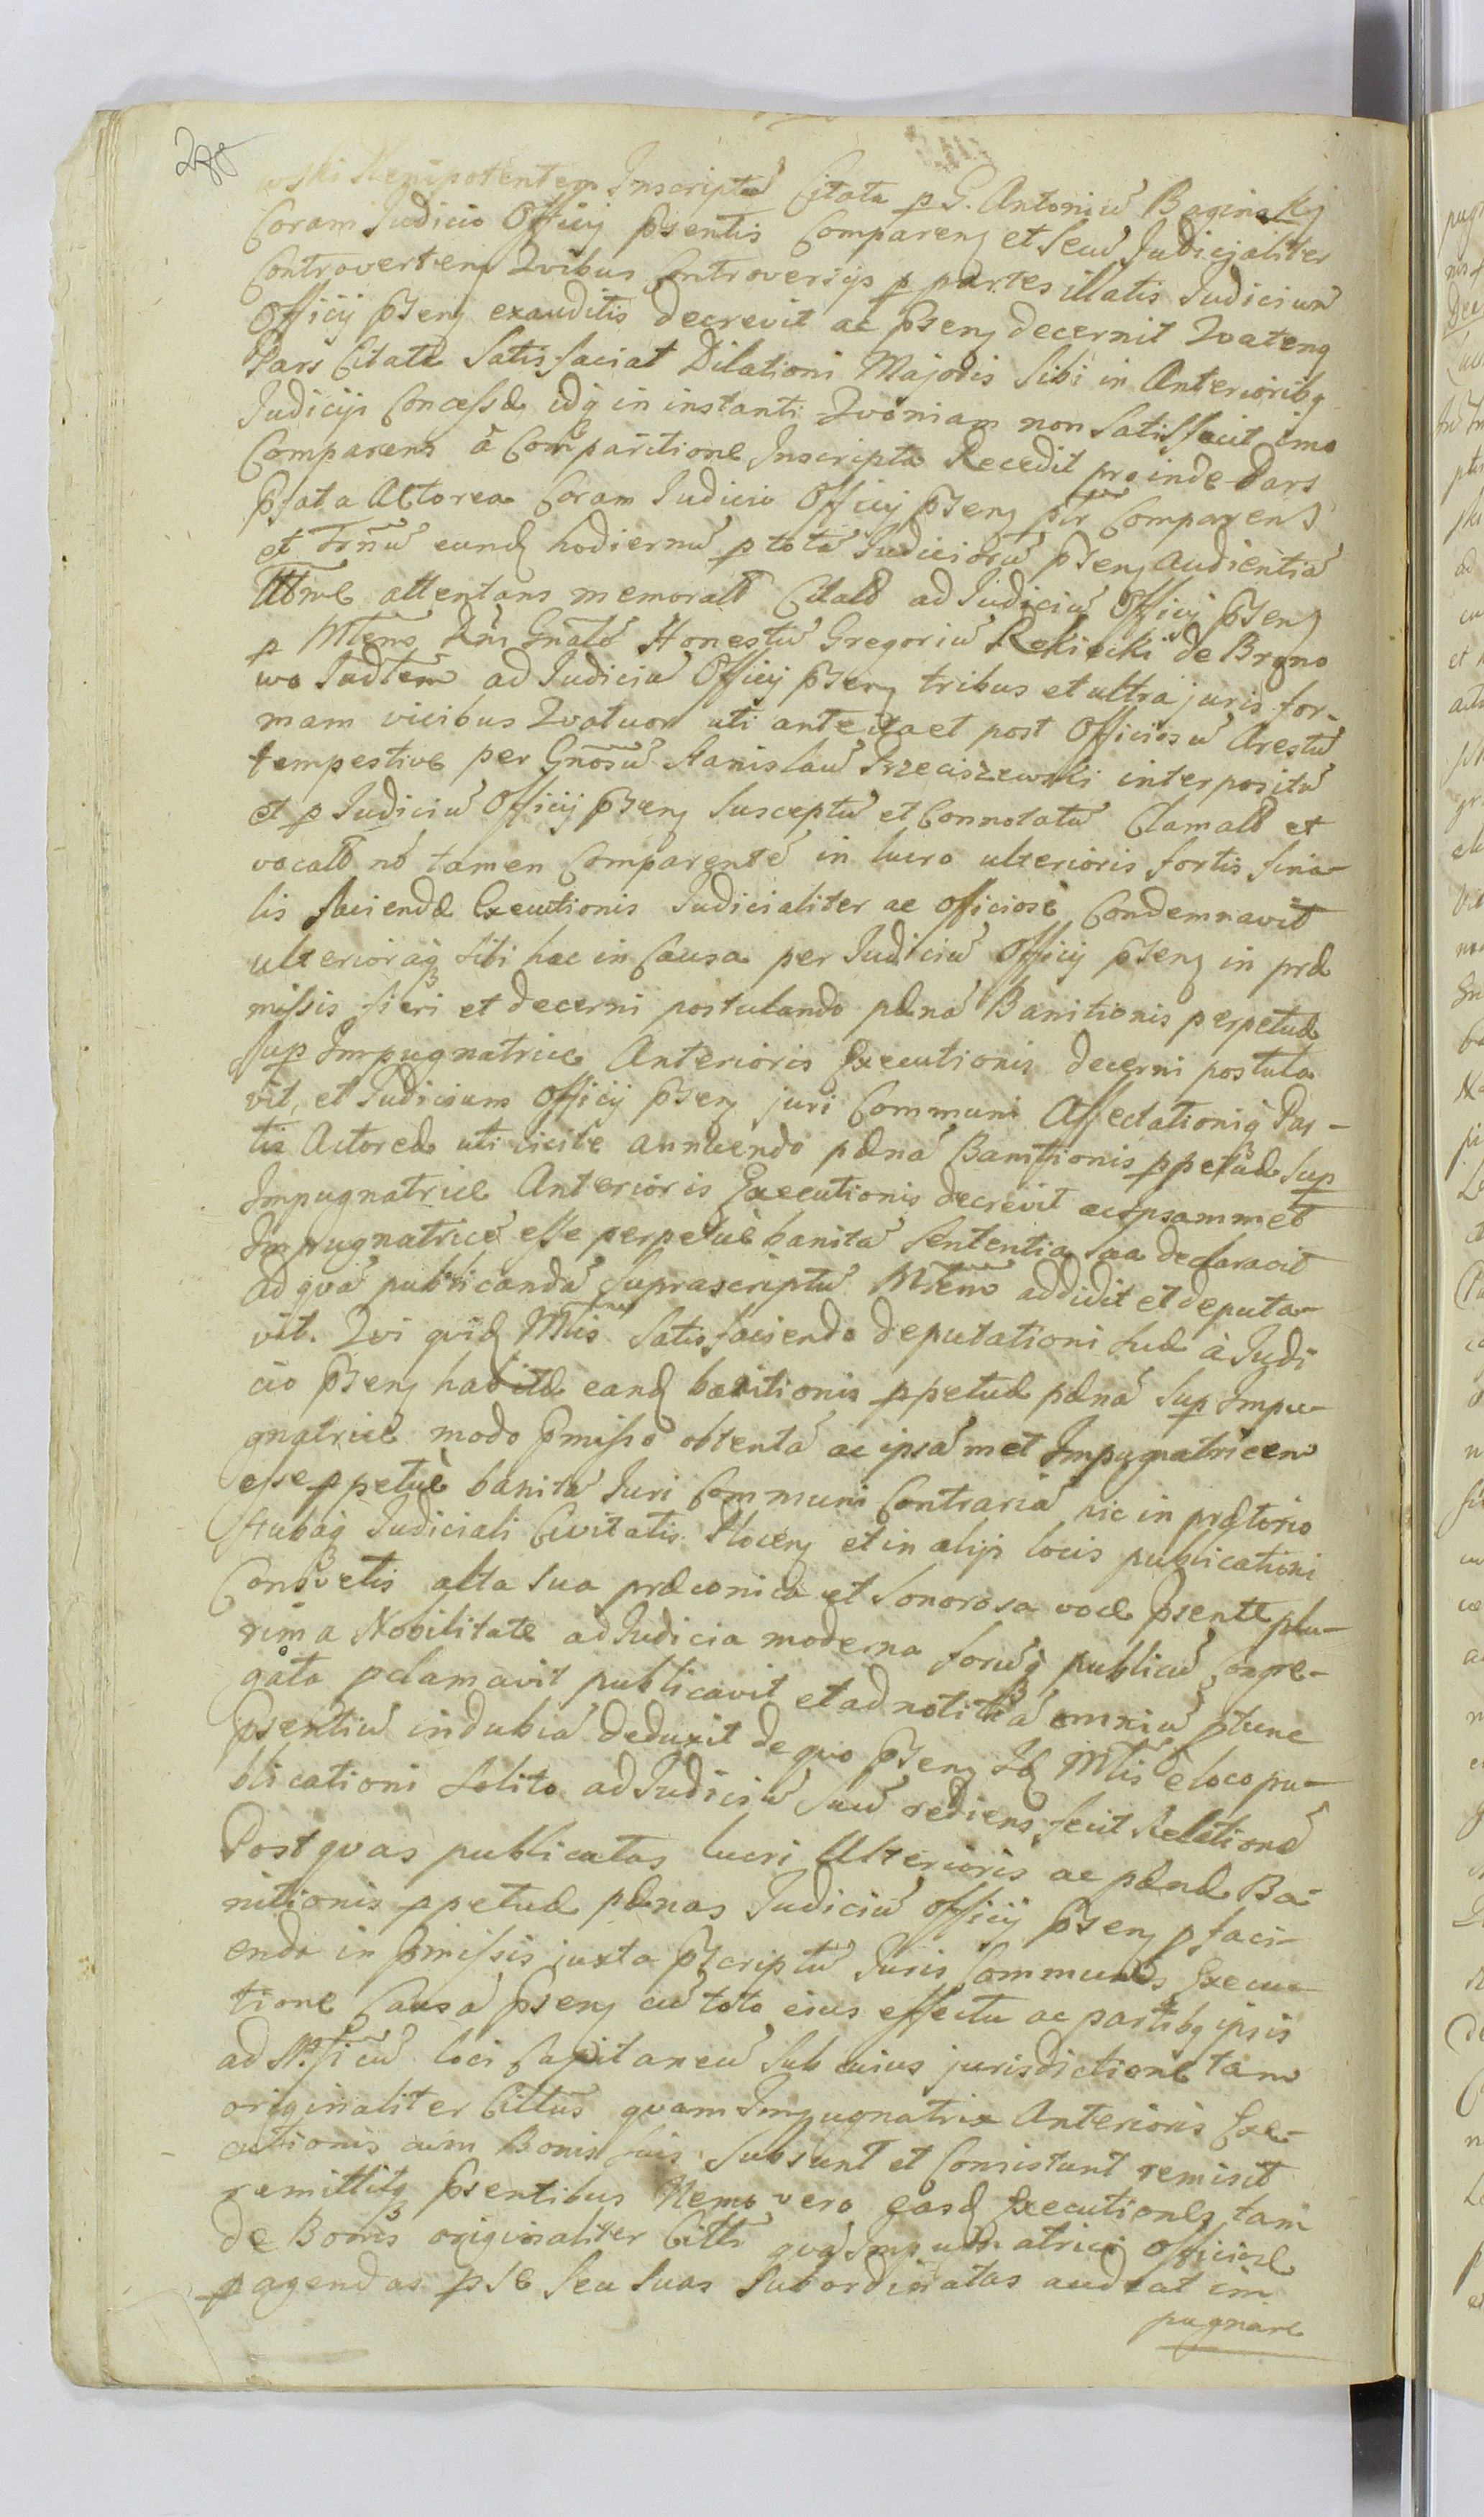 288
ski Plenipotentem Inscriptũ Citata p G. Antoniũ Baginsky
Coram Judicio Officij Pñsentis Comparenꝫ et Seũ Judicialiter
Controvertenꝫ Qvibus Controversijs p partes illatis Judicium
Officij Pñsenꝫ exauditis decrevit ac Pñsenꝫ decernit Qvatenꝗ
Pars Citata Satisfaciat Dilationi Majoris Sibi in Anterioribꝗ
Judicijs Concessæ idꝗ in instanti Qvoniam non Satisfacit imo
Comparens à Comparitione Inscripta Recedit proinde Pars
Pñsata Actorea Coram Judicio Officij Pñsenꝫ Comparens
et Trñũ eundꝫ hodiernũ p totã Judiciorũ Pñsenꝫ audientiã
attentans memoratũ Citatũ ad Judiciũ Officij Pñsenꝫ
p Mtem Rñi Gñalẽ Honestũ Gregoriũ Rekiecki de Brono
wo Judtem ad Judiciũ Officij Pñsenꝫ tribus et ultra juris for-
mam vicibus Qvatuor uti ante ita et post Officiosũ Arestũ
tempestive per Gñosũ Stanislaũ Trzeciszewski interpositũ
et p Judiciũ Officij Pñsenꝫ Susceptũ et Connotatũ Clamatũ et
vocatũ nõ tamen Comparentẽ in lucro ulterioris sortis fina-
lis faciendæ Executionis Judicialiter ac officiosè Condemnavit
ulterioraꝗ Sibi hac in Causa per Judiciũ Officij Pñsenꝫ in præ
missis fieri et decerni postulando pænã Banitionis perpetuæ
Sup Impugnatrice Anterioris Executionis decerni postula
vit, et Judicium Officij Pñsenꝫ juri Communi Affectationiꝗ Par-
tis Actoreæ uti licite annuendo pænã Banitionis ppetuæ Sup
Impugnatrice Anterioris Executionis decrevit ac ipsammet
Impugnatricẽ esse perpetuè banitã Sententia sua declaravit
Ad qvã publicandã Suprascriptũ Mtem addidit et deputa-
vit. Qvi qvidꝫ Mtis Satisfaciendo deputationi suæ à Judi
cio Pñsenꝫ habitæ eandꝫ banitionis ppetuæ pænã Sup Impu-
gnatrice modo Pmisso obtentã ac ipsãmet Impugnatricem
esse ppetuè banitã Juri Communi Contrariã hic in prætorio
Stubaꝗ Judiciali Civitatis Plocenꝫ et in alijs locis publicationi
Consvetis alta sua præconica et Sonorosa voce Pñsente plu-
rima Nobilitate ad Judicia moderna forũꝗ publicũ Congre-
gata pclamavit publicavit et ad notitiã omniũ ptunc
Pñsentiũ indubiã deduxit de qvo Pñsenꝫ Idꝫ Mtis è loco pu-
blicationi Solito ad Judiciũ suũ rediens fecit Relationẽ
Post qvas publicatas lucri Ulterioris ac pænæ Ba-
nitionis ppetuæ pænas Judiciũ Officij Pñsenꝫ p faci-
enda in Pmissis juxta Pscriptũ Juris Communis Execu-
tione Causã Pñsenꝫ cũ toto eius effectu ac partibꝗ ipsis
ad loci Capitaneũ Sub cuius jurisdictione tam
originaliter Cittũs qvam Impugnatrix Anterioris Exe-
cutionis cum Bonis suis Subsunt et Consistunt remisit
remittitꝗ Pñsentibus Nemo vero easdꝫ Executiones tam
de Bonis originaliter Citti qvã Impugnatrici officiose
pagendas p se seu Suas Subordinatas audeat im
pugnare